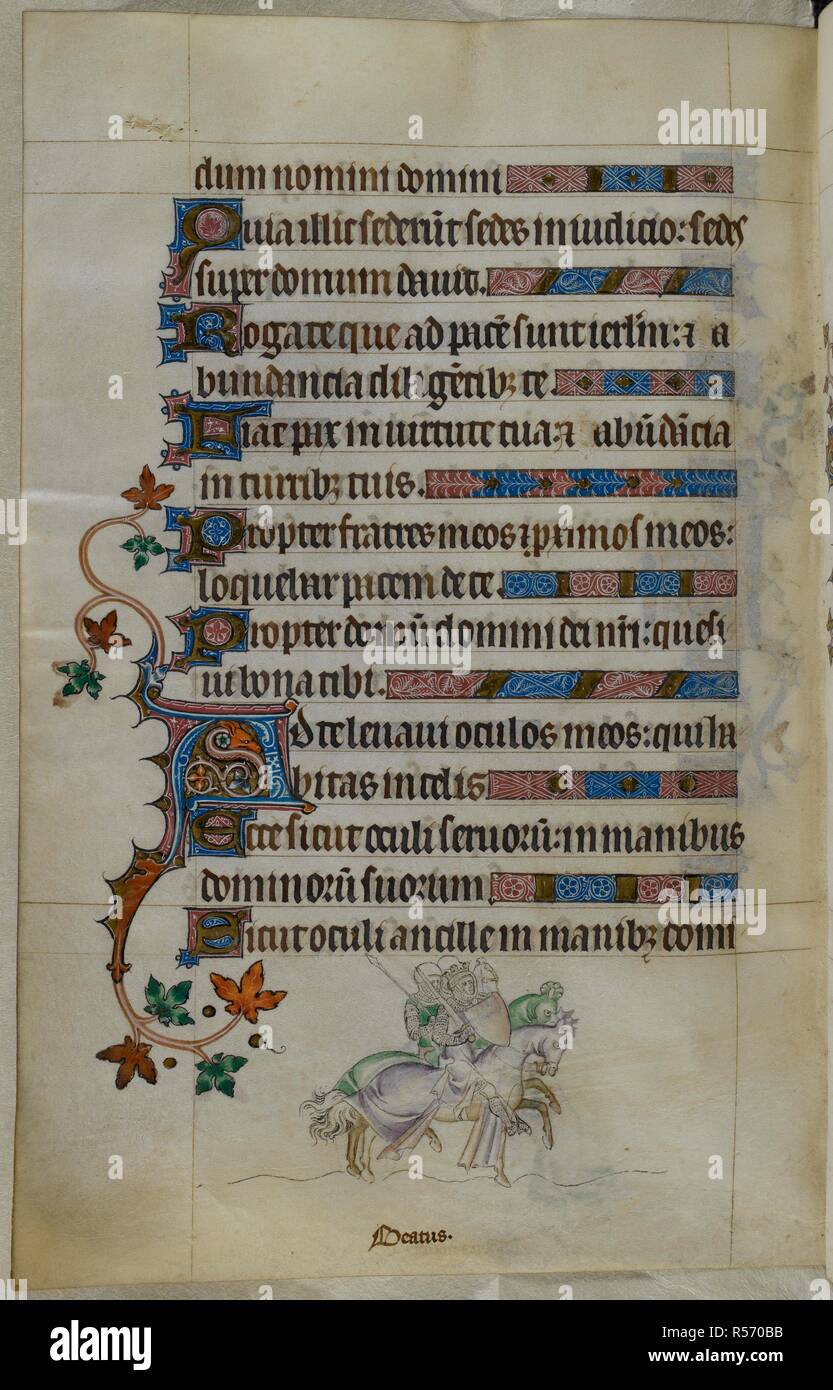 dum nomini domini
Quia illic sederūt sedes in iudicio: sedes
super domum dauid.
Rogate que ad pacē sunt ierl̄m: ⁊ a
bundancia diliḡetibꝫ te.
Fiat pax in uirtute tua: ⁊ abūdācia
in turribꝫ tuis.
Propter fratres meos ⁊ ꝓximos meos:
loquebar pacem de te.
Propter domū domini dei nr̄i: quesi
ui bona tibi.
Ad te leuaui oculos meos: qui ha
bitas in celis
Ecce sicut oculi seruorū: in manibus
dominorū suorum
Sicut oculi ancille in manibꝫ domi
Beatus.
alamy
alamy
Image ID: R570BB
www.alamy.com